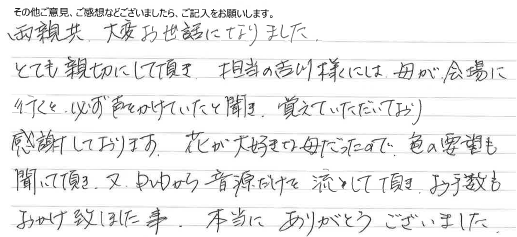 その他ご意見、ご感想などございましたら、ご記入をお願いします。
両親共、大変お世話になりました。
とても親切にして頂き、担当の吉川様には、母が会場に
行くと、必ず声をかけていたと聞き、覚えていただいており
感謝しております。花が大好きな母だったので、色の要望も
聞いて頂き、又、DVDから音源だけを流して頂き、お手数も
おかけ致しました事、本当にありがとうございました。